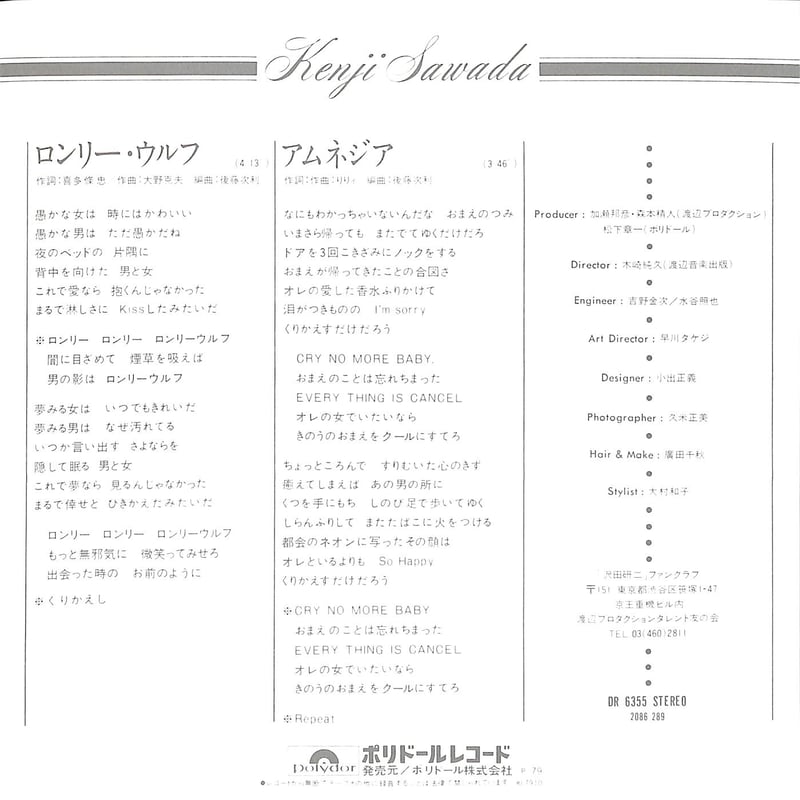 Kenji Sawada
ロンリー・ウルフ (4 13)
作詞:喜多條 忠 作曲:大野克夫 編曲:後藤次利
愚かな女は 時にはかわいい
愚かな男は ただ愚かだね
夜のベッドの 片隅に
背中を向けた 男と女
これで愛なら 抱くんじゃなかった
まるで淋しさに Kissしたみたいだ
※ロンリー ロンリー ロンリーウルフ
闇に目ざめて 煙草を吸えば
男の影は ロンリーウルフ
夢みる女は いつでもきれいだ
夢みる男は なぜ汚れてる
いつか言い出す さよならを
隠して眠る 男と女
これで夢なら 見るんじゃなかった
まるで倖せと ひきかえたみたいだ
ロンリー ロンリー ロンリーウルフ
もっと無邪気に 微笑ってみせろ
出会った時の お前のように
※くりかえし
アムネジア (3 46)
作詞:作曲:りりィ 編曲:後藤次利
なにもわかっちゃいないんだな おまえのつみ
いまさら帰っても またでてゆくだけだろ
ドアを3回こきざみにノックをする
おまえが帰ってきたことの合図さ
オレの愛した香水ふりかけて
泪がつきものの I'm sorry
くりかえすだけだろう
CRY NO MORE BABY,
おまえのことは忘れちまった
EVERY THING IS CANCEL
オレの女でいたいなら
きのうのおまえをクールにすてろ
ちょっところんで すりむいた心のきず
癒えてしまえば あの男の所に
くつを手にもち しのび足で歩いてゆく
しらんふりして またたばこに火をつける
都会のネオンに写ったその顔は
オレといるよりも So Happy
くりかえすだけだろう
※CRY NO MORE BABY
おまえのことは忘れちまった
EVERY THING IS CANCEL
オレの女でいたいなら
きのうのおまえをクールにすてろ
※Repeat
Producer : 加瀬邦彦・森本精人(渡辺プロダクション)
松下章一(ポリドール)
Director : 木崎純久(渡辺音楽出版)
Engineer : 吉野金次/水谷照也
Art Director : 早川タケジ
Designer : 小出正義
Photographer : 久米正美
Hair & Make : 廣田千秋
Stylist : 大村和子
「沢田研二」ファンクラブ
〒151 東京都渋谷区笹塚1-47
京王重機ビル内
渡辺プロダクションタレント友の会
TEL 03(460)2811
DR 6355 STEREO
2086 289
polydor ポリドールレコード
発売元/ポリドール株式会社 P 79